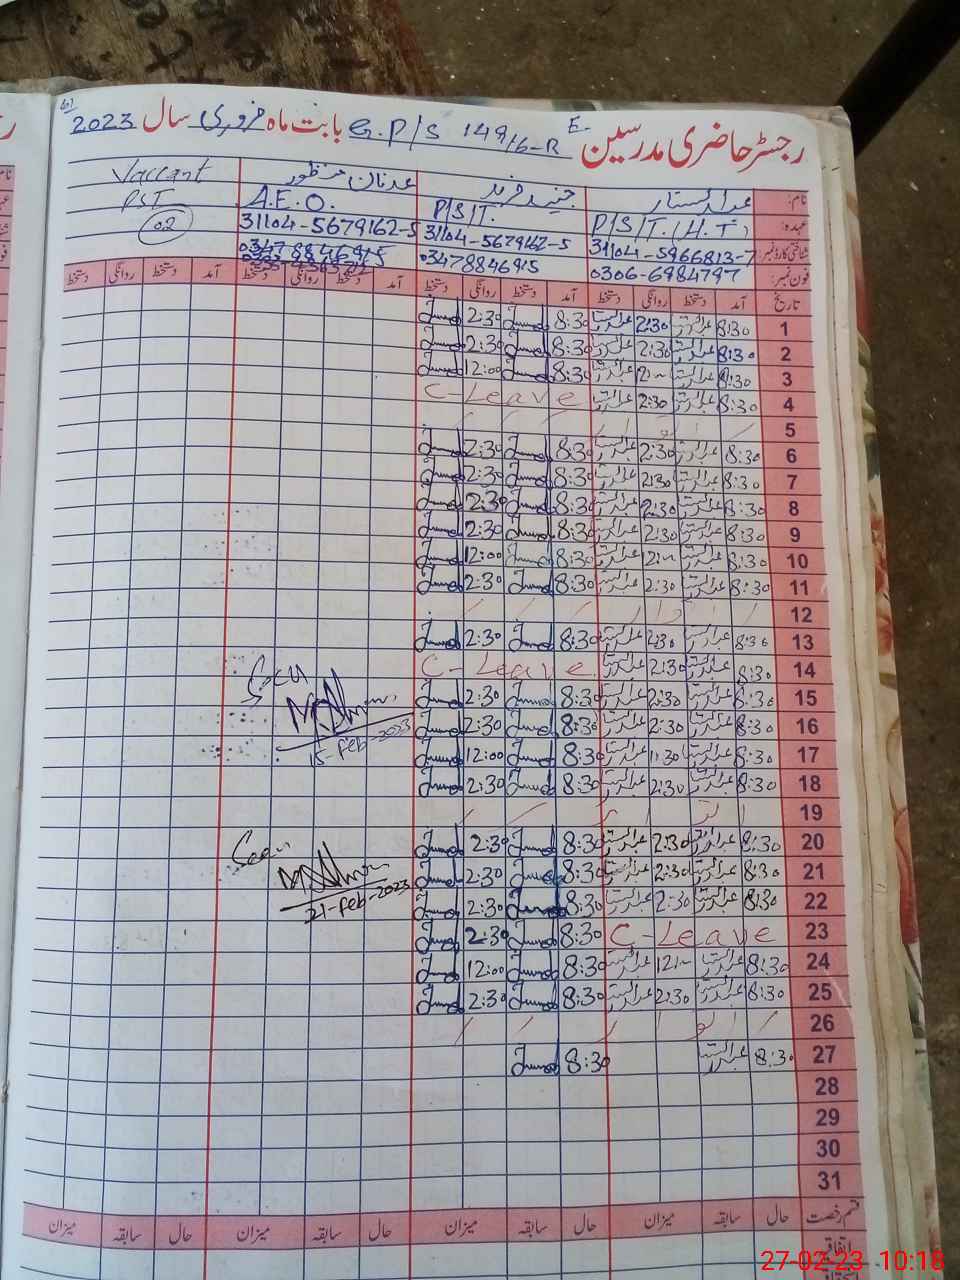 رجسٹر حاضری مدرسین G.P/S 149/6-R بابت ماہ فروری سال 2023
نام: عبدالستار جنید فرید عدنان منظور Vaccant
عہدہ: P/S/T. (H.T) P/S/T. A.E.O. PST
شناختی کارڈ نمبر: 31104-5966813-7 31104-5679162-5 31104-5679162-5 02
فون نمبر: 0306-6984797 03478846915 03478846915
تاریخ آمد دستخط روانگی دستخط آمد دستخط روانگی دستخط آمد دستخط روانگی دستخط آمد دستخط روانگی دستخط
1 8:30 عبدالستار 2:30 عبدالستار 8:30 Junaid 2:30 Junaid
2 8:30 عبدالستار 2:30 عبدالستار 8:30 Junaid 2:30 Junaid
3 8:30 عبدالستار 12:- عبدالستار 8:30 Junaid 12:00 Junaid
4 8:30 عبدالستار 2:30 عبدالستار C-Leave
5
6 8:30 عبدالستار 2:30 عبدالستار 8:30 Junaid 2:30 Junaid
7 8:30 عبدالستار 2:30 عبدالستار 8:30 Junaid 2:30 Junaid
8 8:30 عبدالستار 2:30 عبدالستار 8:30 Junaid 2:30 Junaid
9 8:30 عبدالستار 2:30 عبدالستار 8:30 Junaid 2:30 Junaid
10 8:30 عبدالستار 12:- عبدالستار 8:30 Junaid 12:00 Junaid
11 8:30 عبدالستار 2:30 عبدالستار 8:30 Junaid 2:30 Junaid
12 اتوار
13 8:30 عبدالستار 2:30 عبدالستار 8:30 Junaid 2:30 Junaid
14 8:30 عبدالستار 2:30 عبدالستار C-Leave
Seen
15 8:30 عبدالستار 2:30 عبدالستار 8:30 Junaid 2:30 Junaid
16 8:30 عبدالستار 2:30 عبدالستار 8:30 Junaid 2:30 Junaid
15-feb-2023
17 8:30 عبدالستار 11:30 عبدالستار 8:30 Junaid 12:00 Junaid
18 8:30 عبدالستار 2:30 عبدالستار 8:30 Junaid 2:30 Junaid
19
20 8:30 عبدالستار 2:30 عبدالستار 8:30 Junaid 2:30 Junaid
Seen
21 8:30 عبدالستار 2:30 عبدالستار 8:30 Junaid 2:30 Junaid
22 8:30 عبدالستار 2:30 عبدالستار 8:30 Junaid 2:30 Junaid
21-feb-2023
23 C-Leave 8:30 Junaid 2:30 Junaid
24 8:30 عبدالستار 12:- عبدالستار 8:30 Junaid 12:00 Junaid
25 8:30 عبدالستار 2:30 عبدالستار 8:30 Junaid 2:30 Junaid
26
27 8:30 عبدالستار 8:30 Junaid
28
29
30
31
قسم رخصت حال سابقہ میزان حال سابقہ میزان حال سابقہ میزان حال سابقہ میزان
اتفاقیہ
27-02-23 10:18